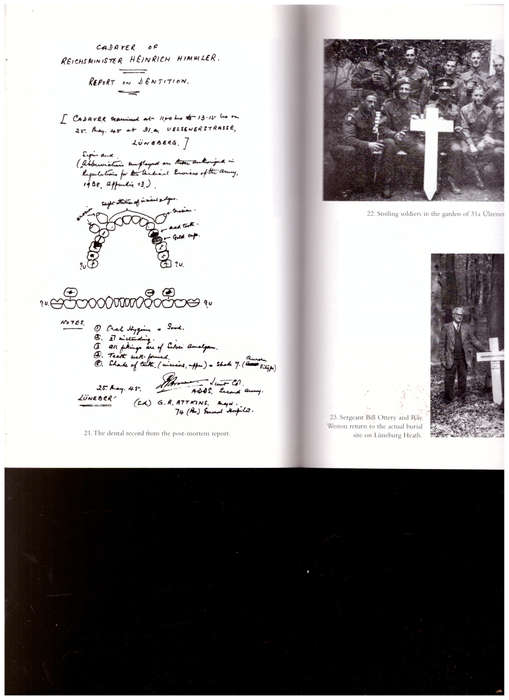 CADAVER OF
REICHSMINISTER HEINRICH HIMMLER.
REPORT ON DENTITION.
[ CADAVER examined at 1100 hrs to 13.15 hrs on
25. May. 45 at 31.a UELZENERSTRASSE,
LÜNEBERG. ]
Signs and
(Abbreviations employed are those authorised in
Regulations for the Medical Services of the Army,
1938, Appendix 13.).
Gold caps.
?U
?U.
?U.
?U
NOTES
① Oral Hygiene = Good.
③ All fillings are of Silver Amalgam.
④ Teeth well formed.
⑤ Shade of teeth (incisors, upper) = Shade 7.
25 May. 45.
Lieut Col
ADDS, Second Army.
LÜNEBERG
(Sd) G. A. ATTKINS. Major.
74 (Br) General Hospital.
21. The dental record from the post-mortem report.
22. Smiling soldiers in the garden of 31a Ülzener
23. Sergeant Bill Ottery and
Weston return to the actual burial
site on Lüneburg Heath.